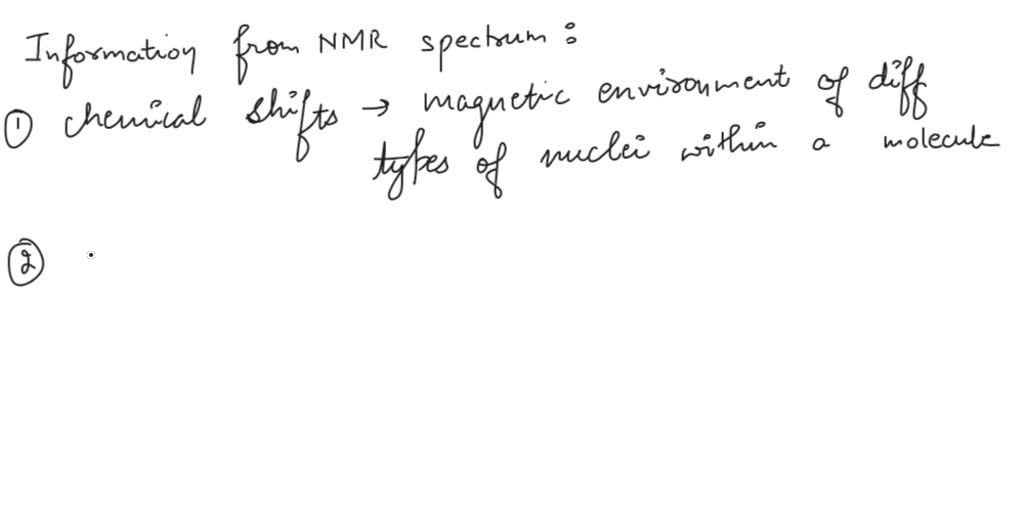 Information from NMR spectrum :
① chemical shifts → magnetic environment of diff
types of nuclei within a molecule
②